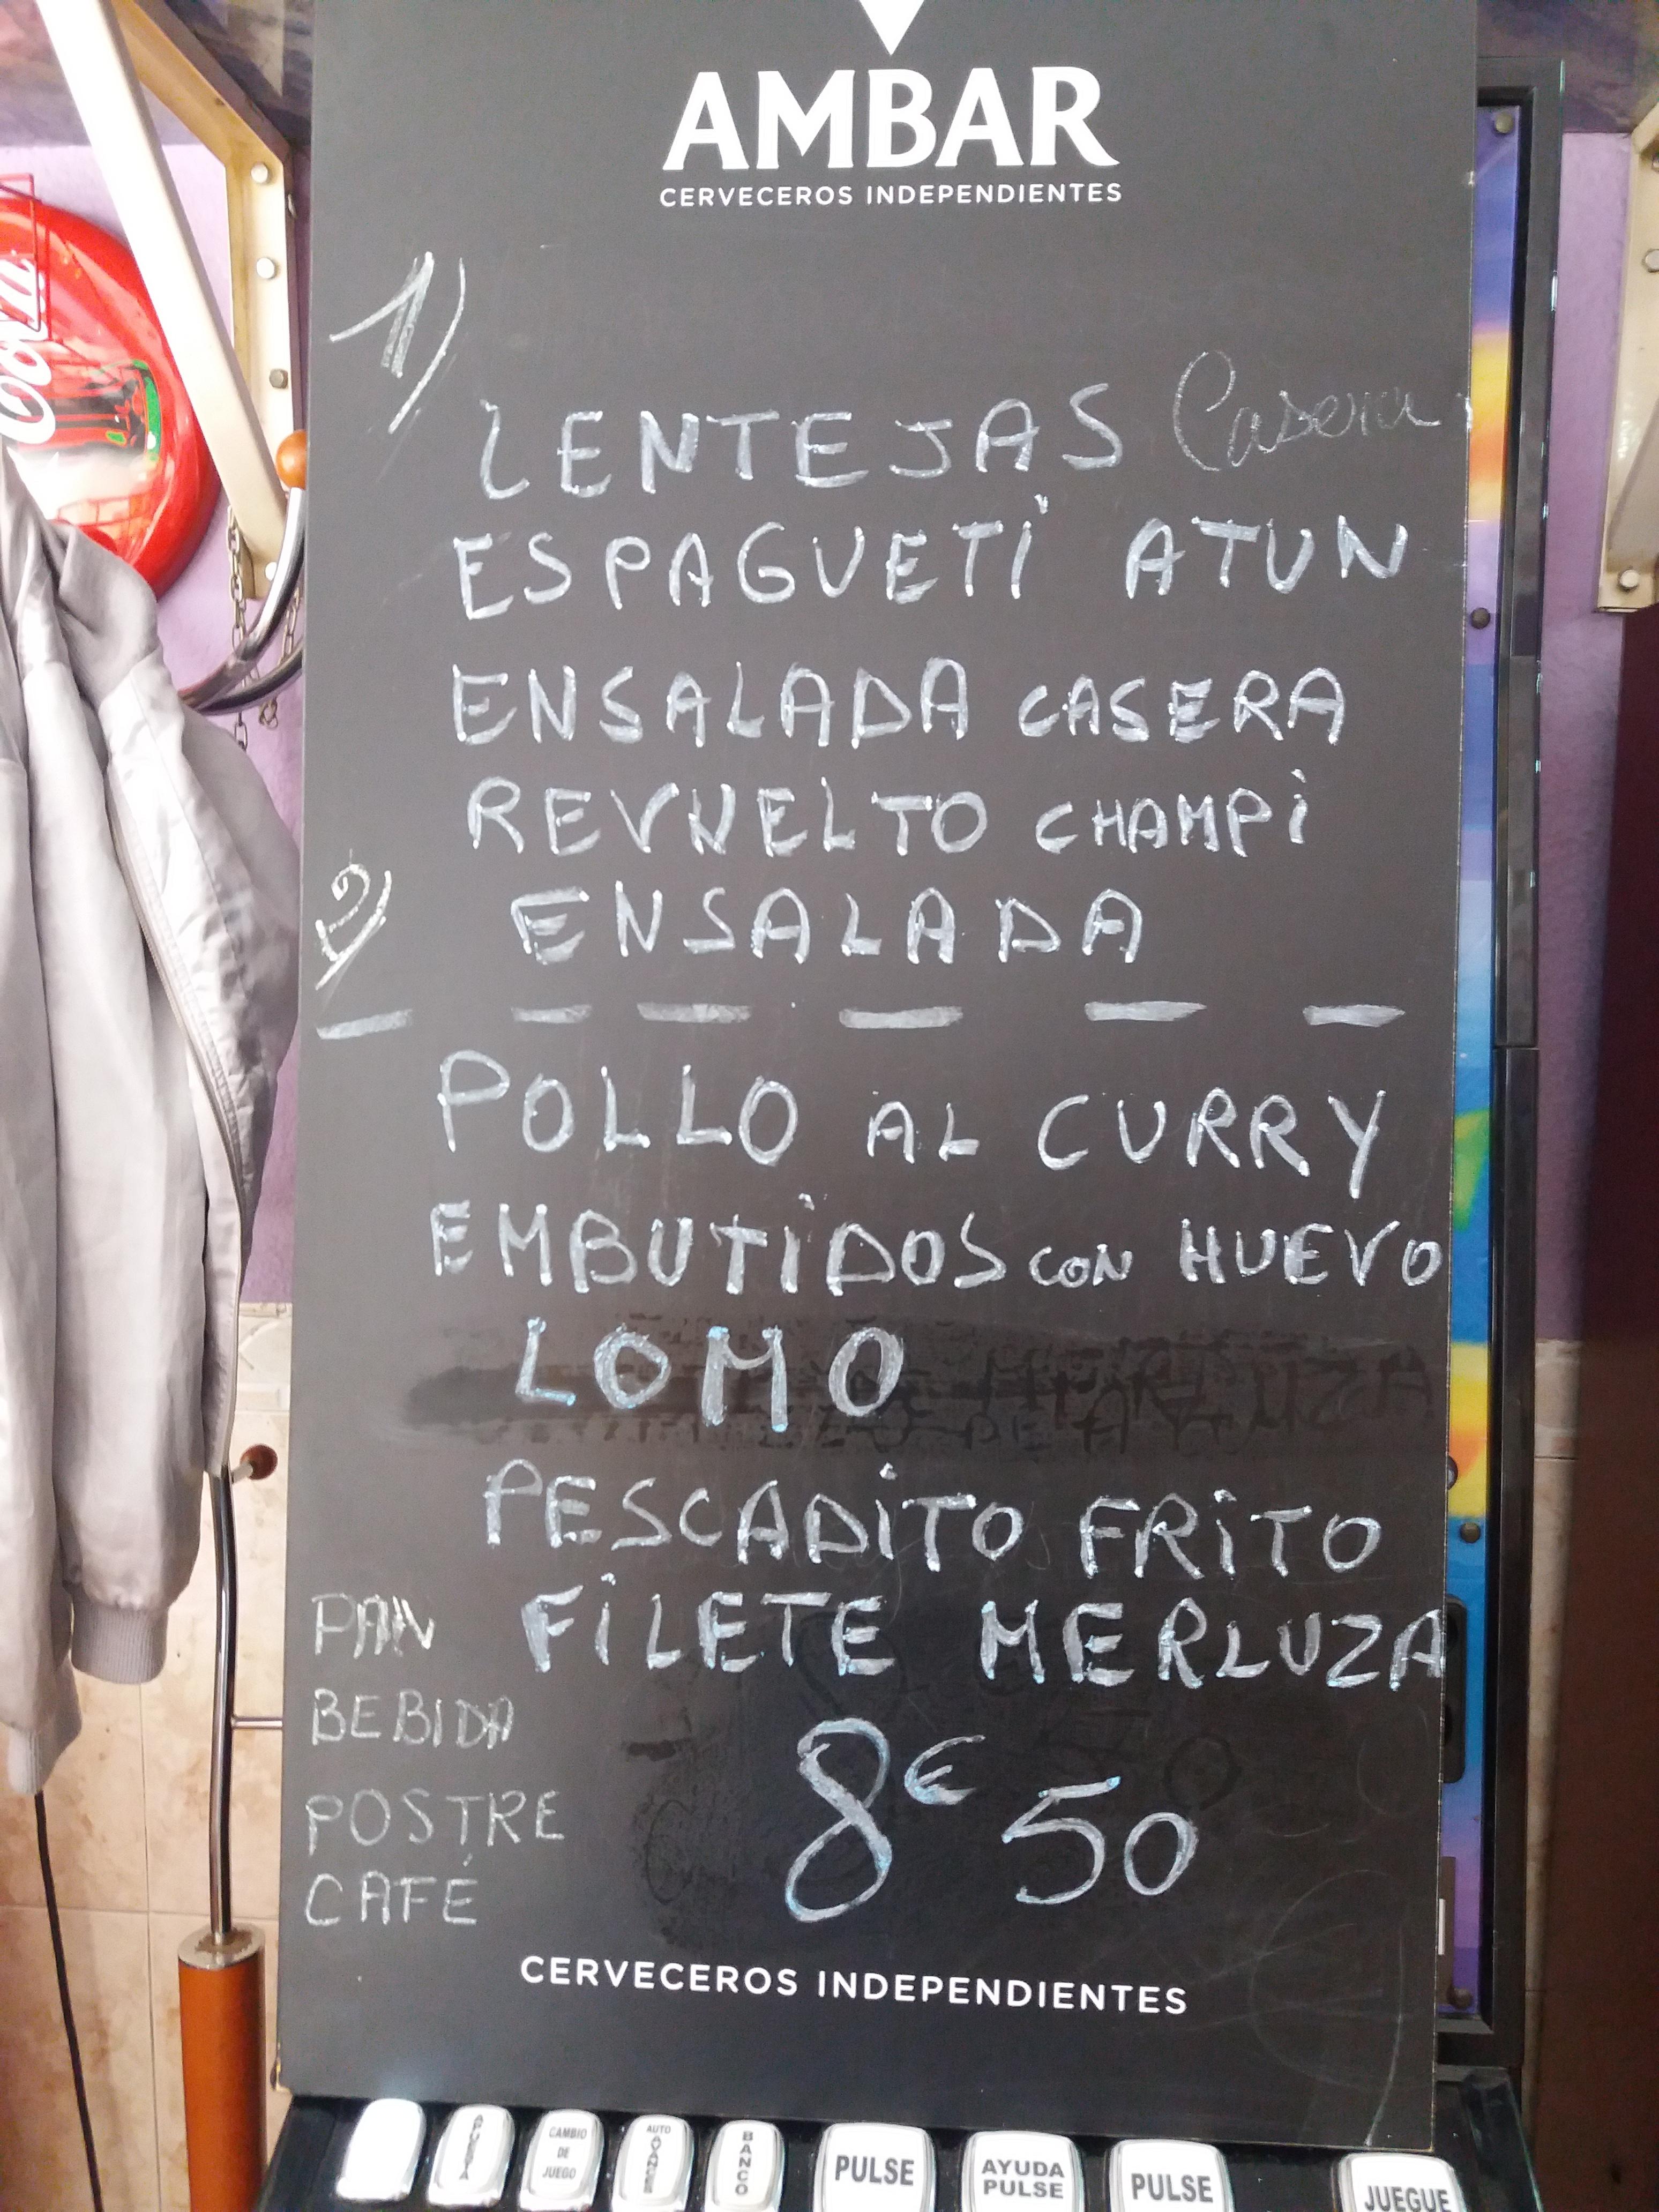 AMBAR
CERVECEROS INDEPENDIENTES
1)
LENTEJAS Casera
ESPAGUETi ATUN
ENSALADA CASERA
REVUELTO CHAMPi
2)
ENSALADA
POLLO AL CURRY
EMBUTiDOS CON HUEVO
LOMO
PESCADiTO FRiTO
PAN FiLETE MERLUZA
BEBIDA
POSTRE
CAFÉ
8€ 50
CERVECEROS INDEPENDIENTES
APUESTA
CAMBIO DE JUEGO
AUTO AVANCE
BANCO
PULSE
AYUDA PULSE
PULSE
JUEGUE